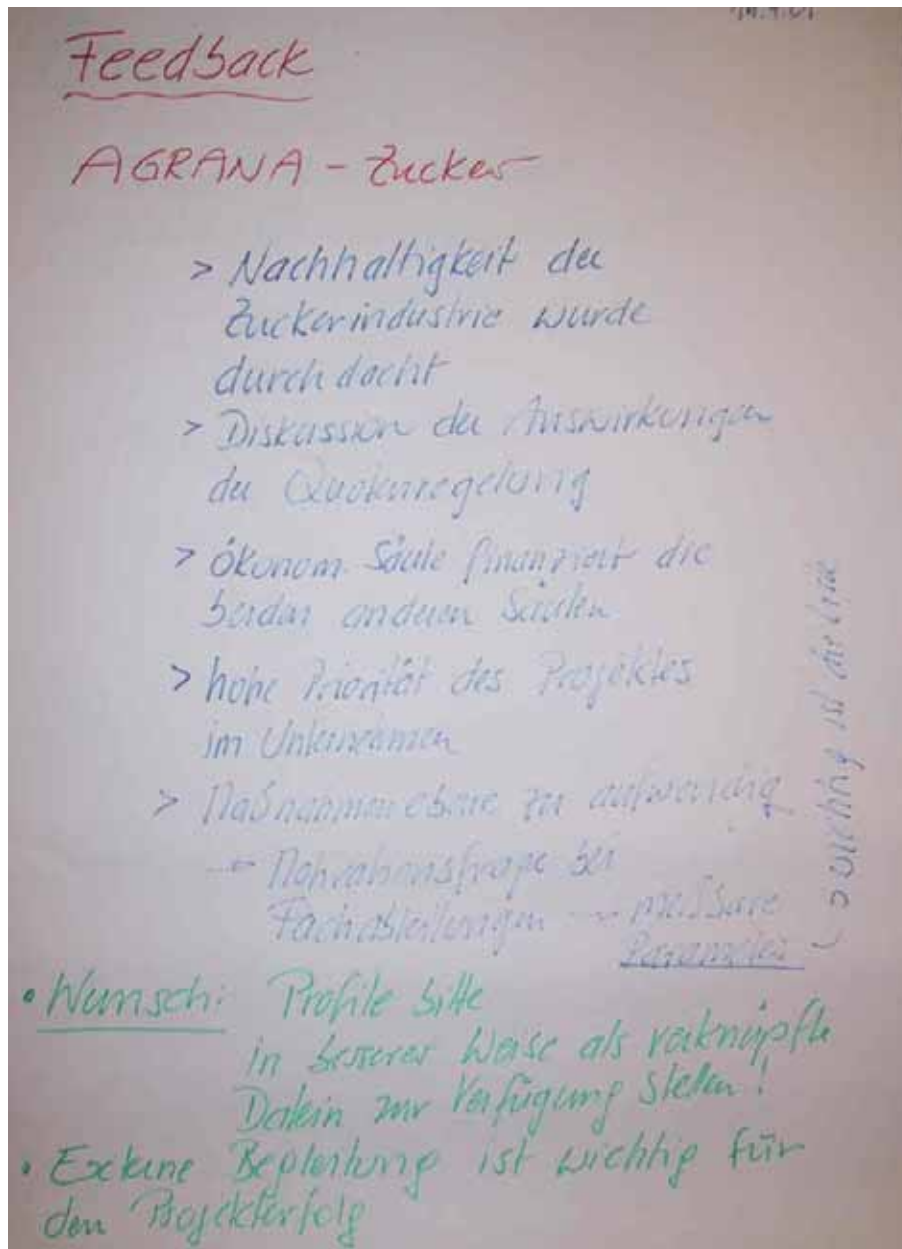 Feedback
AGRANA - Zucker
> Nachhaltigkeit der
Zuckerindustrie wurde
durchdacht
> Diskussion der Auswirkungen
der Quotenregelung
> Ökonom. Säule finanziert die
beiden anderen Säulen
> hohe Priorität des Projektes
im Unternehmen
> Maßnahmenebene zu aufwendig
bei
Fachabteilungen → messbare
Parameter
wichtig ist die
• Wunsch: Profile bitte
in besserer Weise als verknüpfte
Datein zur Verfügung stellen!
• Externe Begleitung ist wichtig für
den Projekterfolg